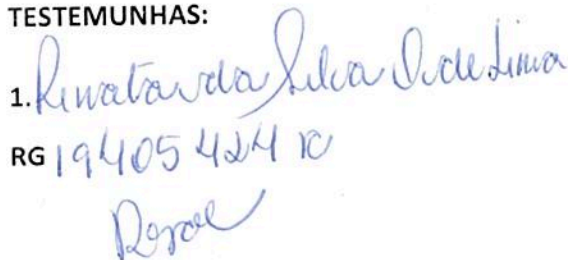 TESTEMUNHAS:
1. Renata da Silva de Lima
RG 19405424